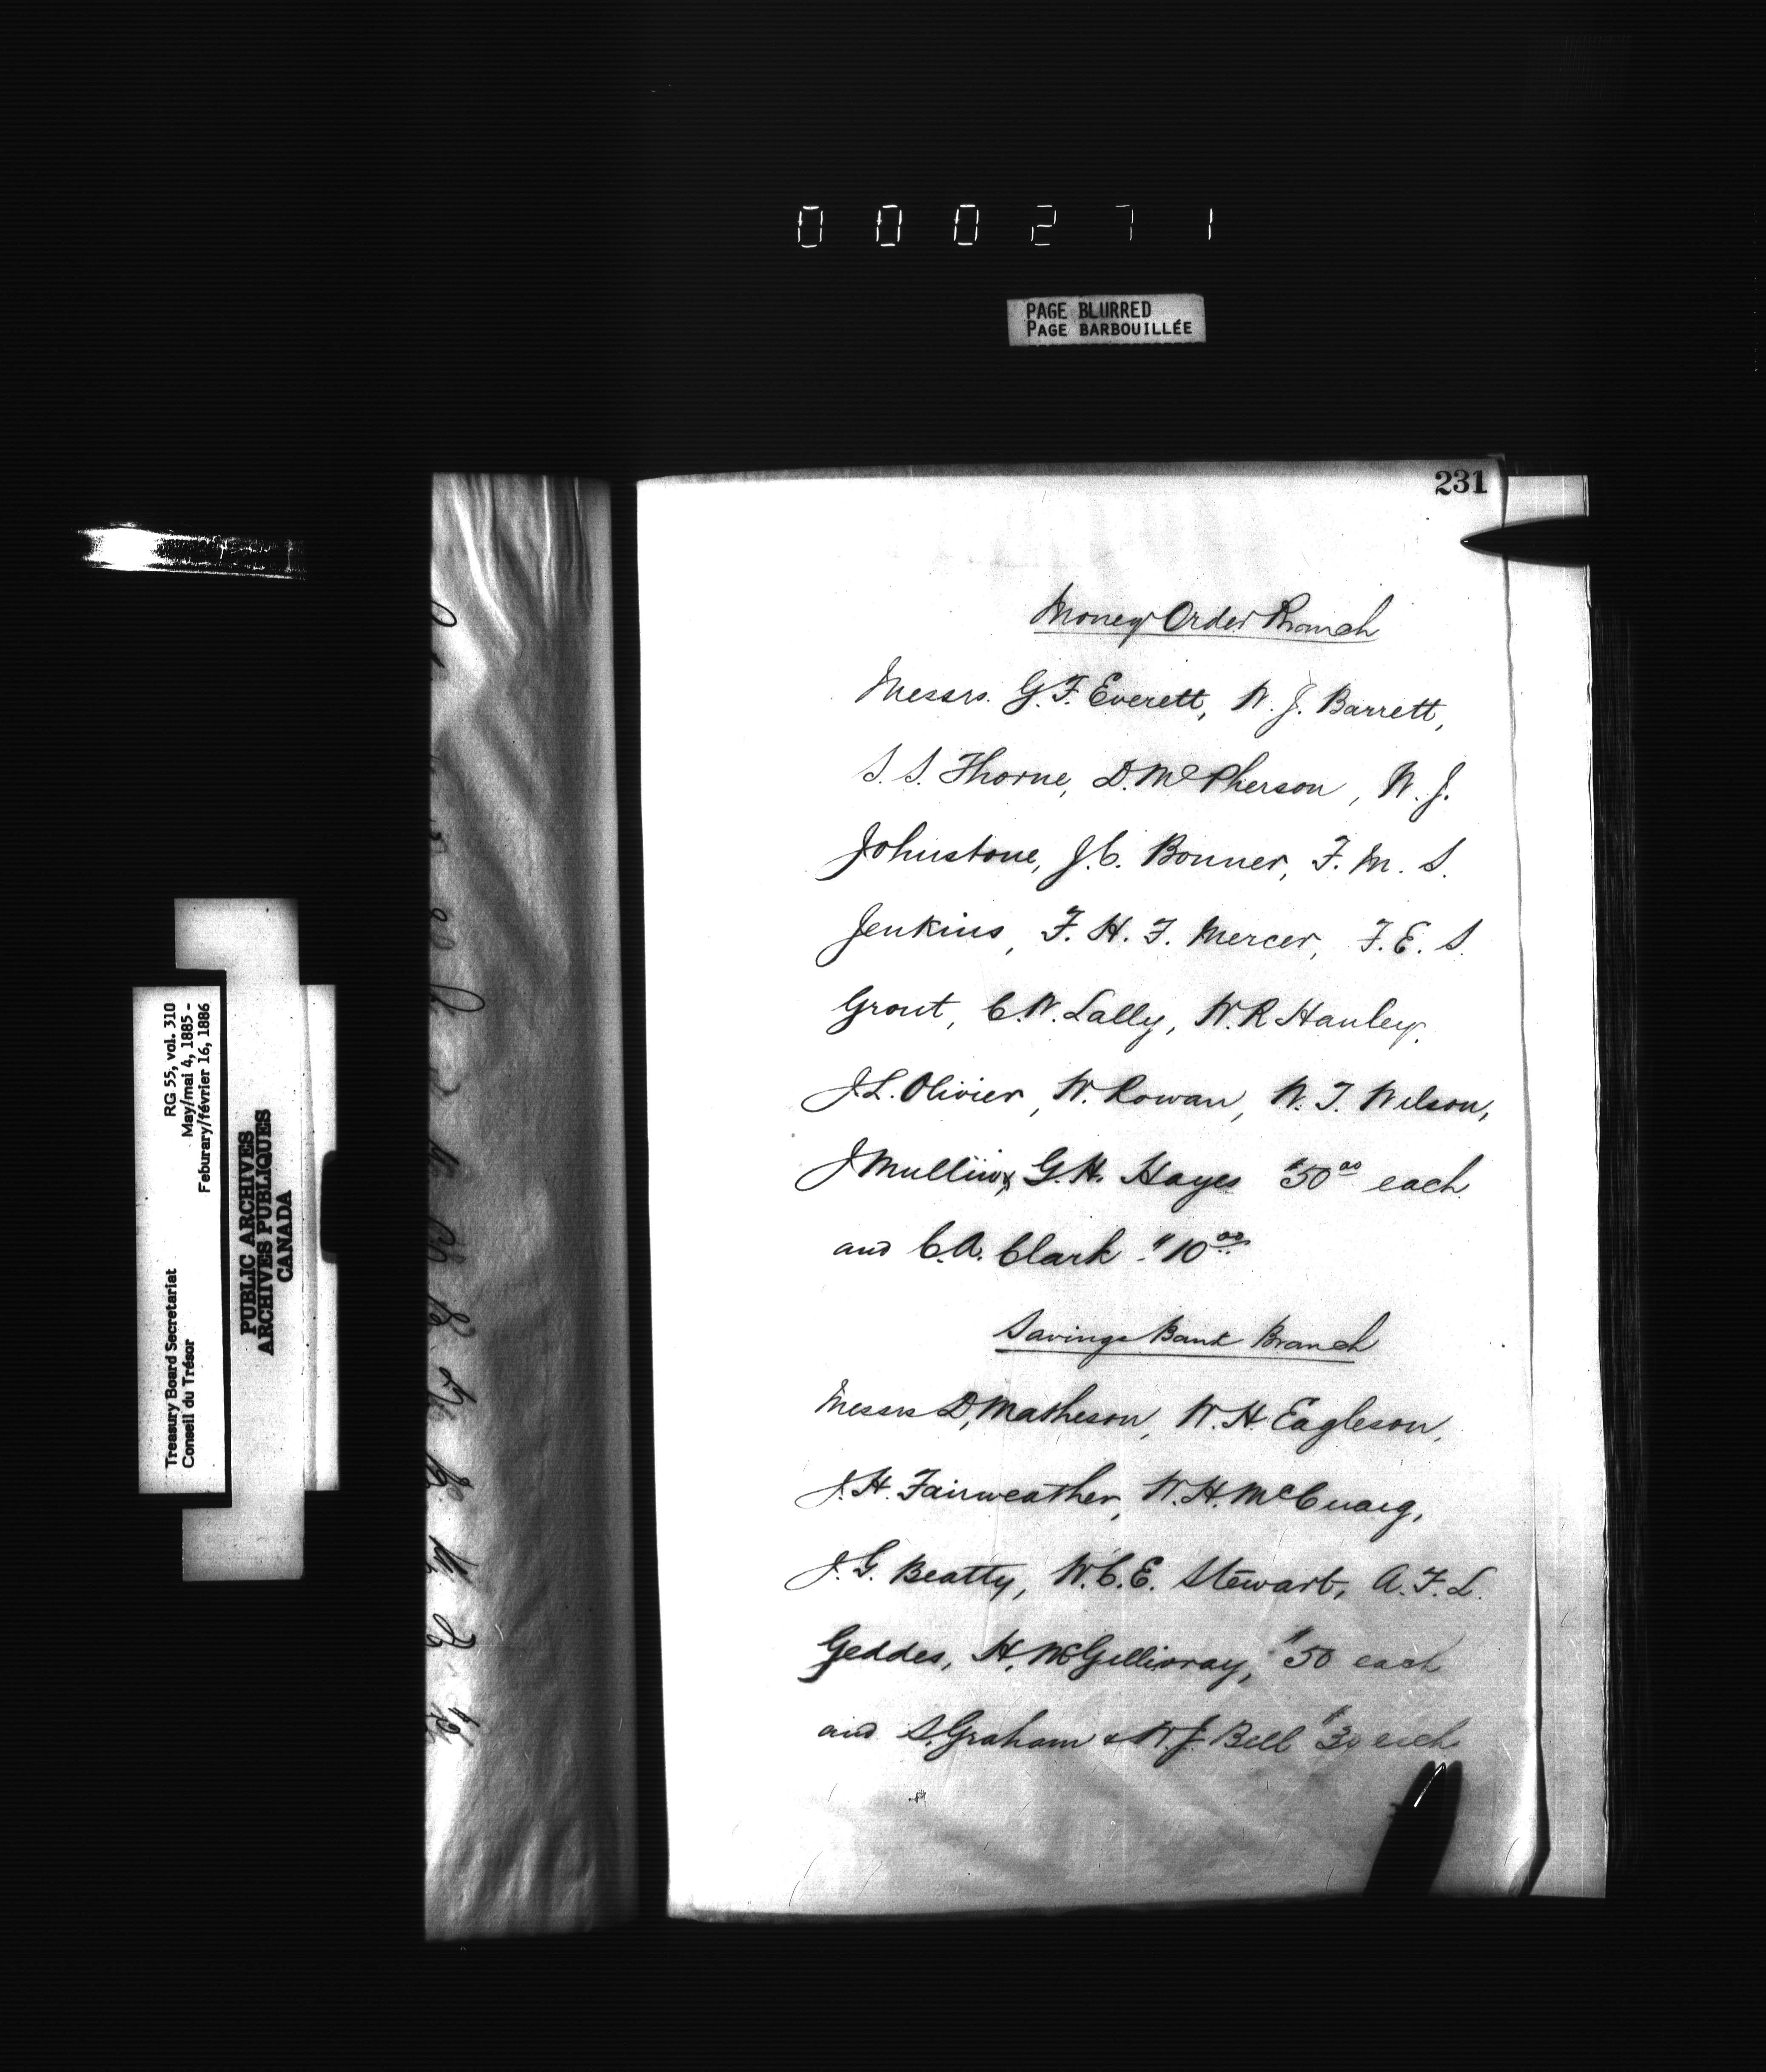 000271
PAGE BLURRED
PAGE BARBOUILLÉE
231
Money Order Branch
Messrs. G. F. Everett, W. J. Barrett,
S. S. Thorne, D. McPherson, W. J.
Johnstone, J. C. Bonner, F. M. S.
Jenkins, F. H. F. Mercer, F. E. S.
Grout, C. W. Lally, W. R Hanley,
J. L. Olivier, W. Rowan, W. T. Wilson,
J Mullin, G. H. Hayes $50 00 each
and C. A. Clark $10 00
Savings Bank Branch
Messrs D, Matheson, W. H. Eagleson,
J. H. Fairweather, W. H. McCuaig,
J. G. Beatty, W. C. E. Stewart, A. F. L.
Geddes, H. McGillivray, $50 each
and S. Graham & W. J. Bell $30 each
RG 55, vol. 310
May/mai 4, 1885 -
Feburary/février 16, 1886
Treasury Board Secretariat
Conseil du Trésor
PUBLIC ARCHIVES
ARCHIVES PUBLIQUES
CANADA